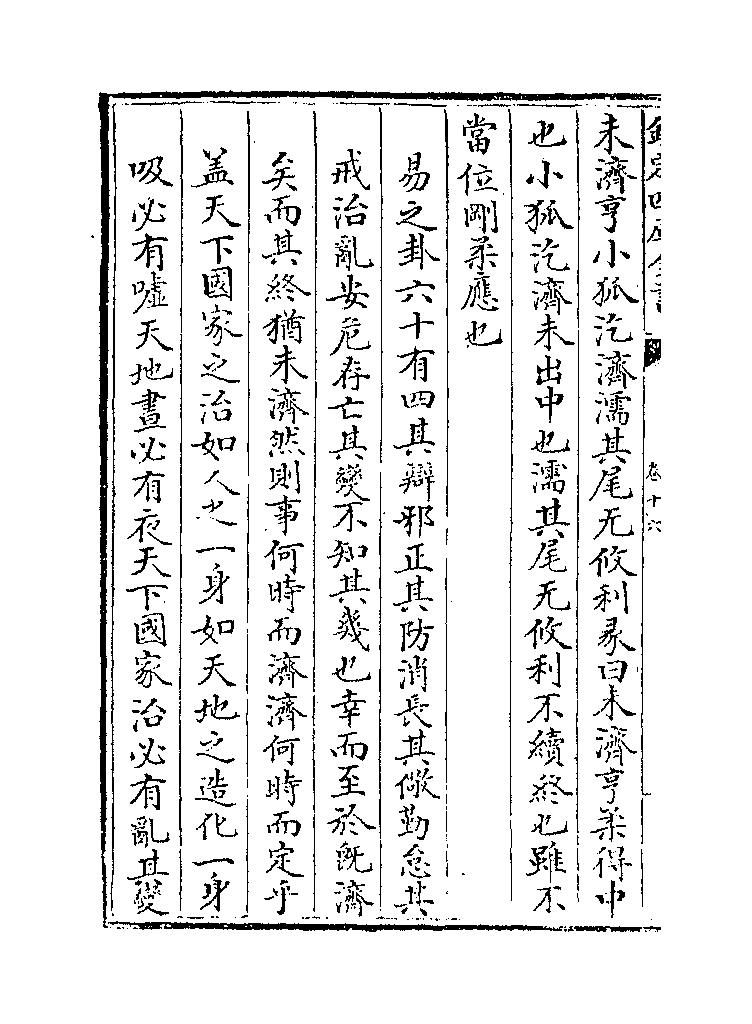 欽定四庫全書
卷十六
未濟亨小狐汔濟濡其尾无攸利彖曰未濟亨柔得中
也小狐汔濟未出中也濡其尾无攸利不續終也雖不
當位剛柔應也
易之卦六十有四其辯邪正其防消長其儆勤怠其
戒治亂安危存亡其變不知其幾也幸而至於既濟
矣而其終猶未濟然則事何時而濟濟何時而定乎
盖天下國家之治如人之一身如天地之造化一身
吸必有嘘天地晝必有夜天下國家治必有亂其變